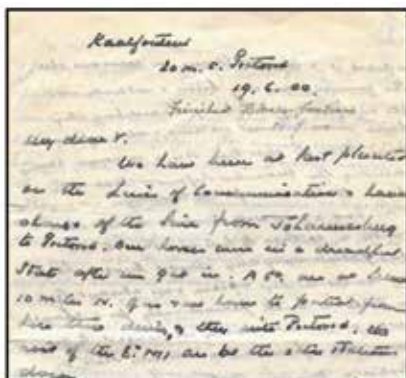 Kaalfontein
20 m. S. Pretoria
19. 6. 00.
Finished
My dear F.
We have been at last planted
on the Lines of Communication & have
charge of the line from Johannesburg
to Pretoria. Our horses were in a dreadful
state after we got in. A Sq. are at
10 miles N. of us & we have to patrol from
here twice daily, & they into Pretoria. The
rest of the are at the other stations
down